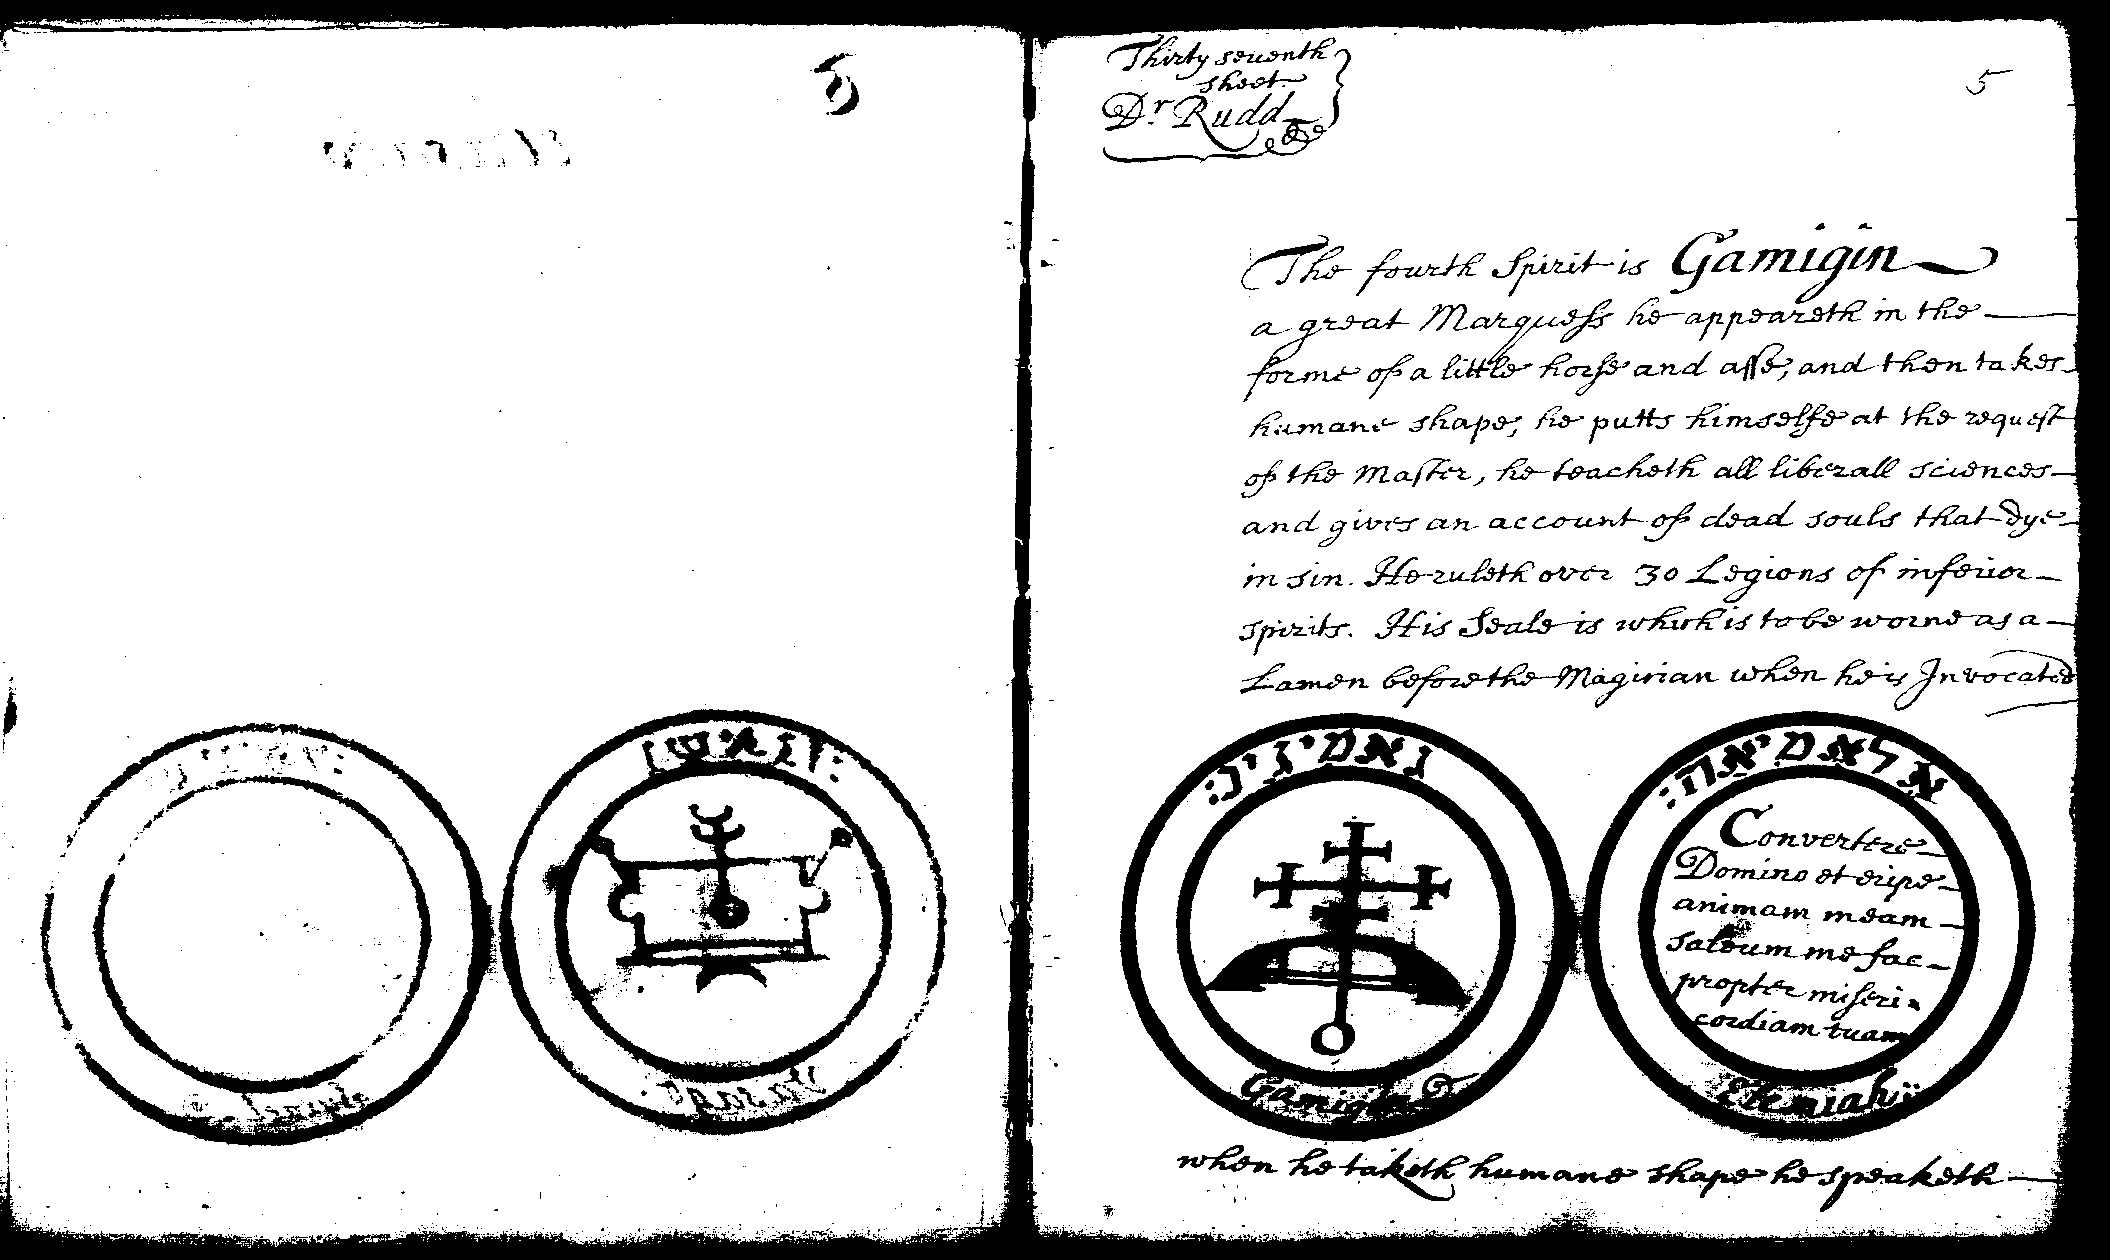 Thirty seuenth
sheet.
Dr. Rudd
5
The fourth Spirit is Gamigin
a great Marquess he appeareth in the
forme of a little horse and asse, and then takes
humane shape, he putts himselfe at the request
of the Master, he teacheth all liberall sciences
and gives an account of dead souls that dye
in sin. He ruleth over 30 Legions of inferior
spirits. His Seale is which is to be worne as a
Lamen before the Magician when he is Invocated
גאמיגינ:
Gamigin
אלאמיאה:
Convertere
Domino et eripe
animam meam
salvum me fac
propter miseri
cordiam tuam
Elemiah
when he taketh humane shape he speaketh